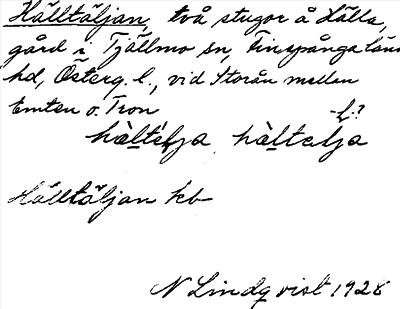 Hälltäljan, två stugor å Hälla,
gård i Tjällmo sn, Finspånga läns
hd, Österg. l., vid Storån mellan
Emten o. Tron
-l-?
hàltelja hàltelja
Hälltäljan kb
N Lindqvist 1928